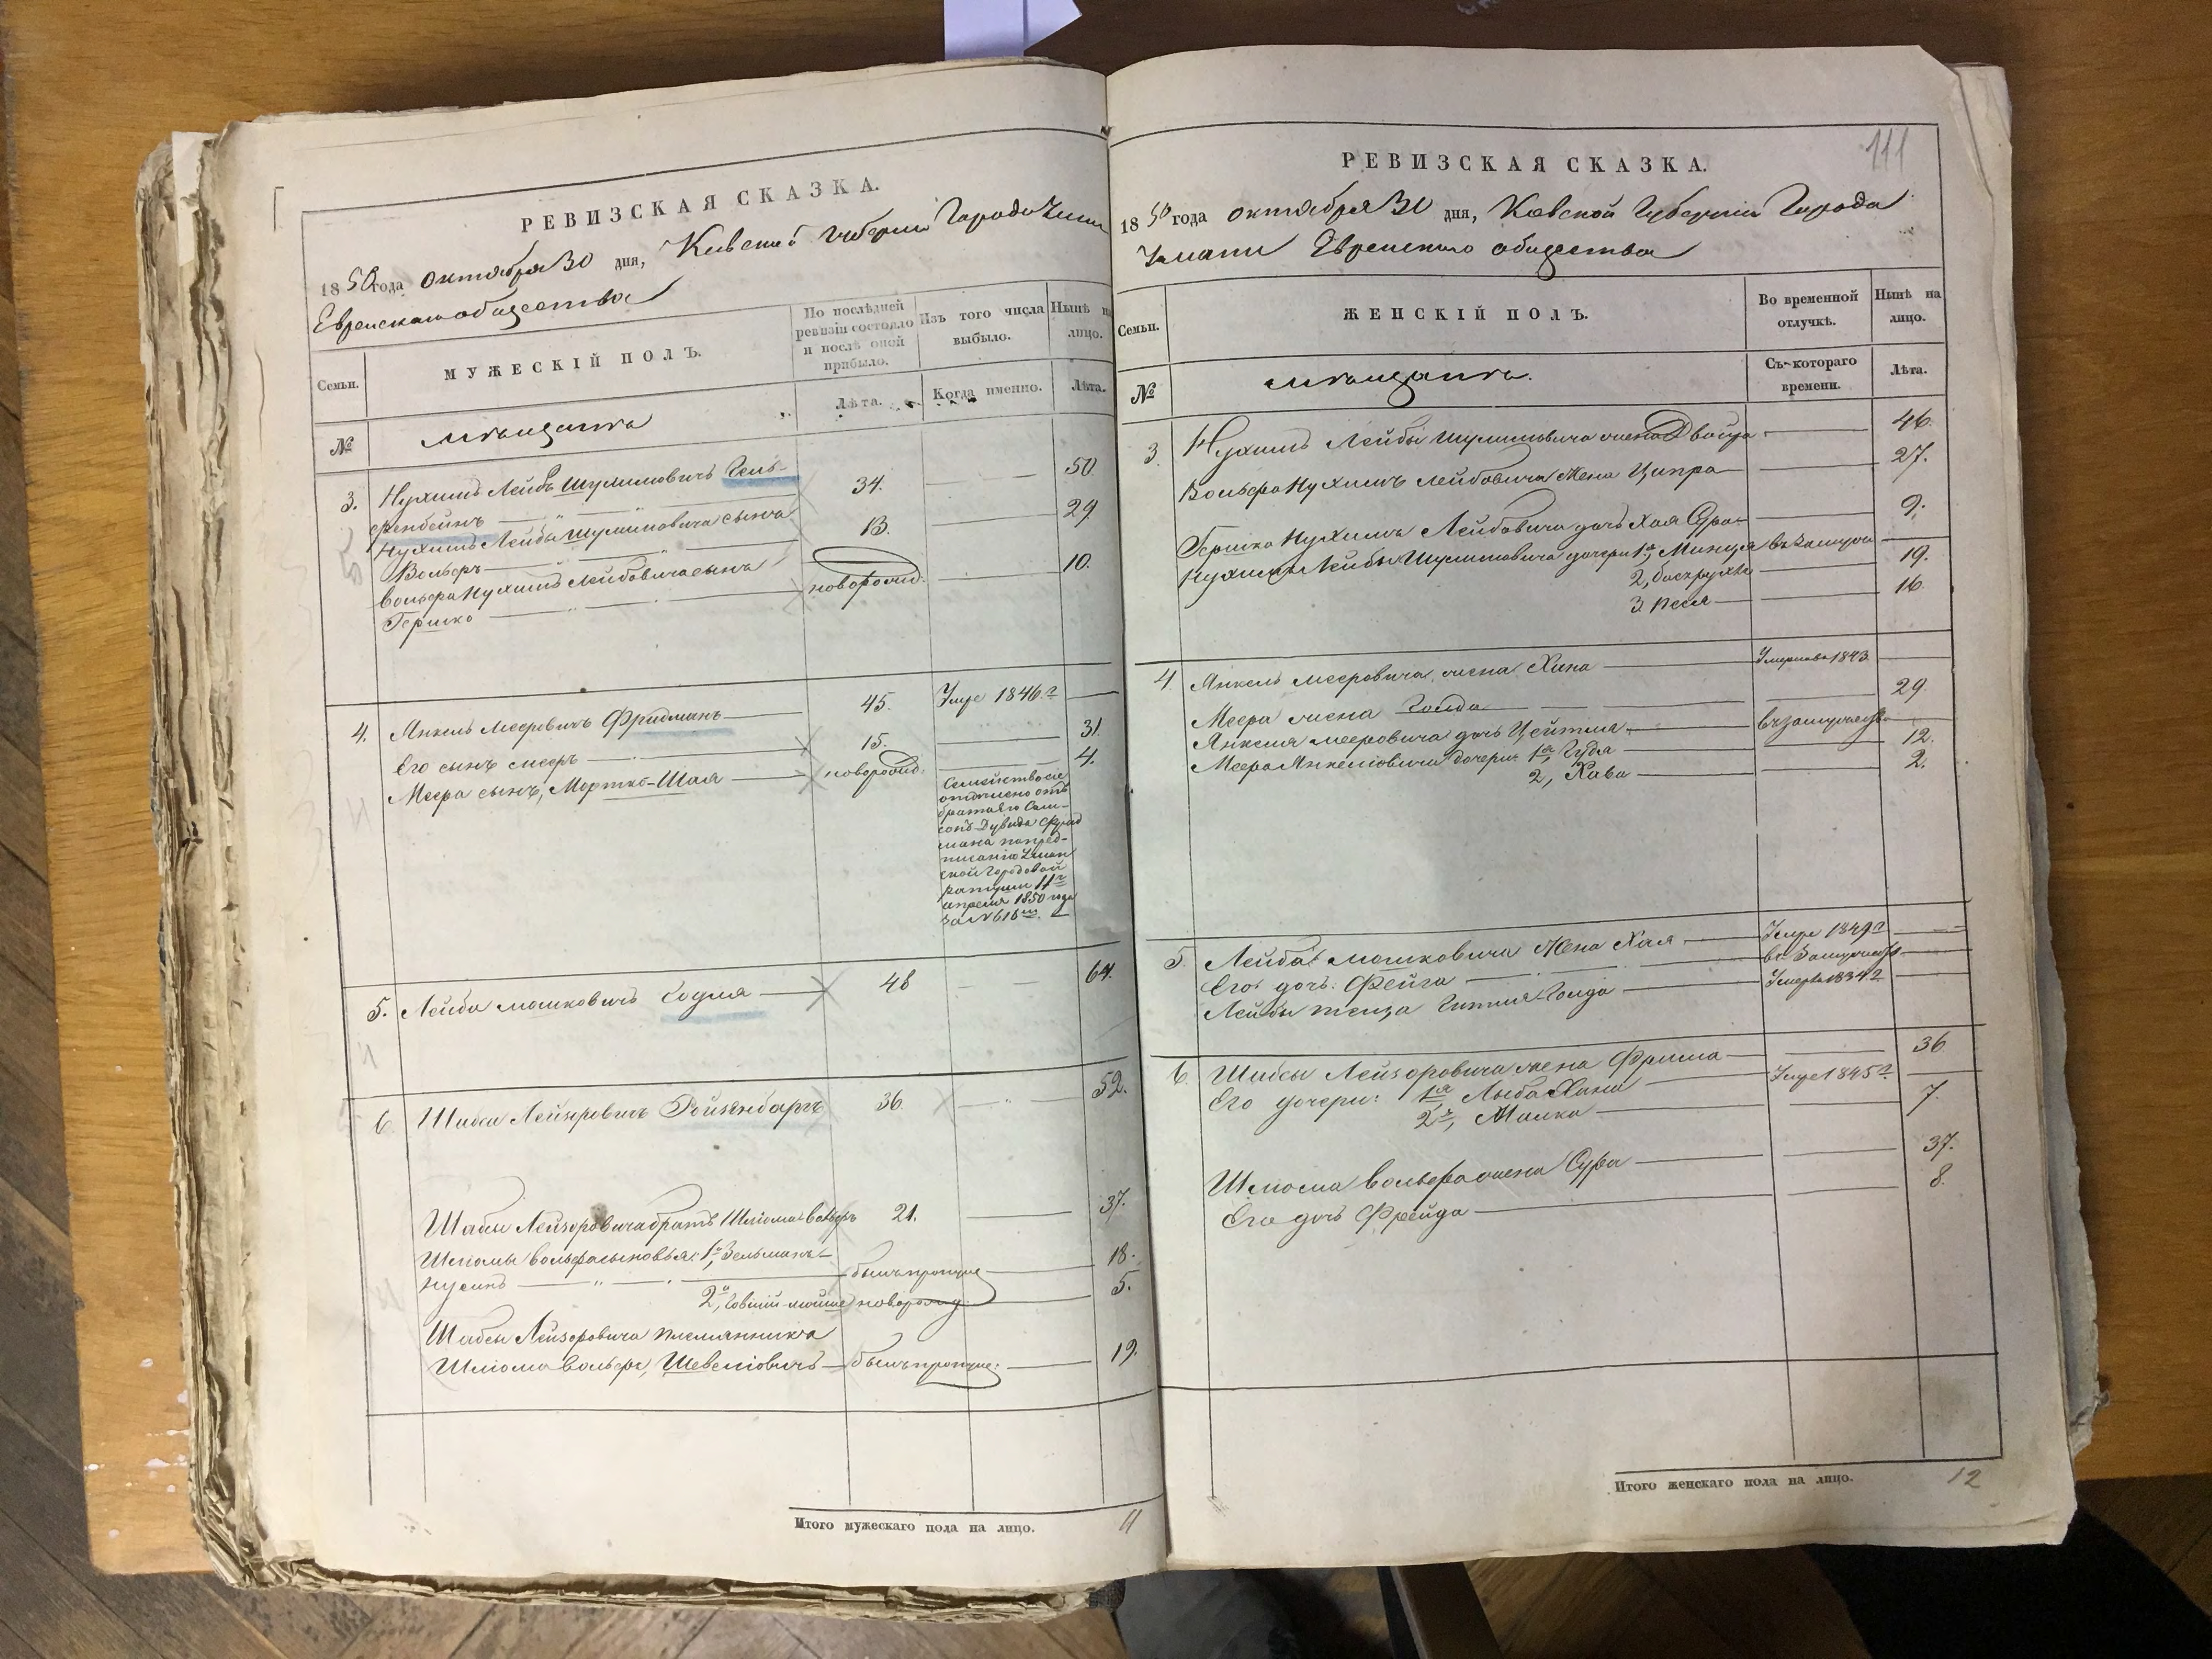 РЕВИЗСКАЯ СКАЗКА.
1850 года октября 30 дня, Киевской губернии Города Умани
Еврейского общества
Семьи.
МУЖЕСКІЙ ПОЛЪ.
По послѣдней ревизіи состояло и послѣ оной прибыло.
Изъ того числа выбыло.
Нынѣ на лицо.
№
Лѣта.
Когда именно.
Лѣта.
мѣщанъ
3. Нухимъ Лейбъ Шулимовичъ Гель- 34. 50
фенбейнъ
Нухимъ Лейбы Шулимовича сынъ
Вольфъ 13. 29
Вольфа Нухимъ Лейбовича сынъ
Гершко новорожд. 10.
4. Янкель Мееровичъ Фридманъ 45. Умре 1846 г
Его сынъ Мееръ 15. 31
Меера сынъ, Мортко-Шая новорожд. 4.
Семейство сіе
отчислено отъ
брата его Сам-
сонъ Дувида Фрид
мана по пред-
писанію Уман
ской Городовой
ратуши 11го
апреля 1850 года
за № 616м.
5. Лейба Мошковичъ Содма 48 64.
6. Шабси Лейзоровичъ Ройзенбаргъ 36. 52.
Шабси Лейзоровича братъ Шліома Вольфъ 21. 37.
Шліомы Вольфа сыновья: 1й, Зельманъ-
Нусинъ былъ пропущ. 18.
2й, новорожд. 5.
Шабси Лейзоровича племянникъ
Шліома Вольфъ, Шевелiовичъ былъ пропущ: 19.
Итого мужескаго пола на лицо. 11
111
РЕВИЗСКАЯ СКАЗКА.
1850 года октября 30 дня, Киевской Губерніи Города
Умани Еврейского общества
Семьи.
ЖЕНСКІЙ ПОЛЪ.
Во временной отлучкѣ.
Нынѣ на лицо.
№
Съ котораго времени.
Лѣта.
мѣщанъ.
3. Нухимъ Лейбы Шулимовича жена Двойра 46.
Вольфа Нухимъ Лейбовича Жена Ципра 27.
Гершка Нухимъ Лейбовича дочь Хая Сура 9.
Нухимъ Лейбы Шулимовича дочери 1я, Минця въ замуж
2, 19.
3 Песя 16.
4. Янкель Мееровича жена Хина Умерла 1843.
Меера жена Голда 29
Янкеля Мееровича дочь Цейтля въ замужеств
Меера Янкеліовича дочери: 1я Гудя 12.
2, Хава 2.
5. Лейба Мошковича Жена Хая Умре 1849 г
Его дочь: Фейга въ Замужеств
Лейбы теща Гитля-Голда Умерла 1834 г
6. Шабси Лейзоровича жена Фрима 36
Его дочери: 1я, Умре 1845 г.
2я, Малка 7.
Шліома Вольфа жена Сура 37.
Его дочь Фрейда 8.
Итого женскаго пола на лицо. 12